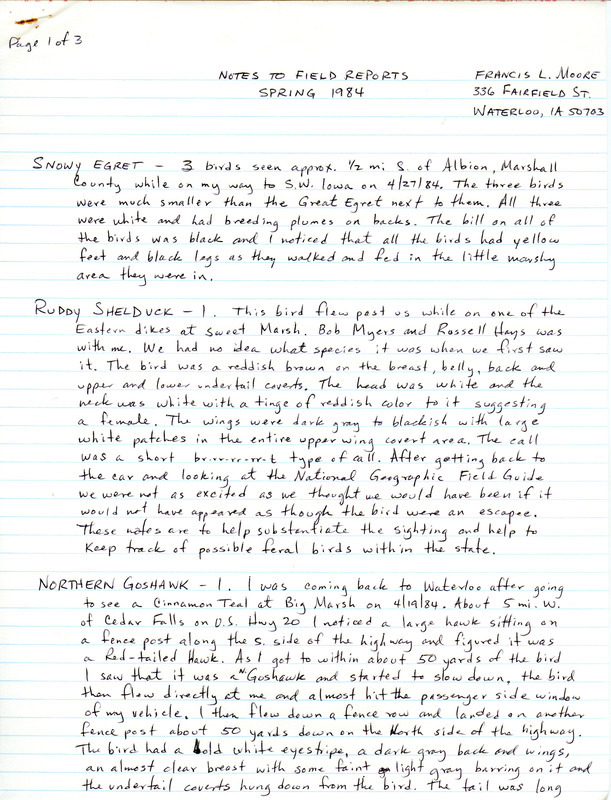 Page 1 of 3
NOTES TO FIELD REPORTS
SPRING 1984
FRANCIS L. MOORE
336 FAIRFIELD ST.
WATERLOO, IA 50703
SNOWY EGRET - 3 birds seen approx. 1/2 mi S. of Albion, Marshall
County while on my way to S.W. Iowa on 4/27/84. The three birds
were much smaller than the Great Egret next to them. All three
were white and had breeding plumes on backs. The bill on all of
the birds was black and I noticed that all the birds had yellow
feet and black legs as they walked and fed in the little marshy
area they were in.
RUDDY SHELDUCK - 1. This bird flew past us while on one of the
Eastern dikes at Sweet Marsh. Bob Myers and Russell Hays was
with me. We had no idea what species it was when we first saw
it. The bird was a reddish brown on the breast, belly, back and
upper and lower undertail coverts. The head was white and the
neck was white with a tinge of reddish color to it suggesting
a female. The wings were dark gray to blackish with large
white patches in the entire upper wing covert area. The call
was a short br-r-r-r-r-t type of call. After getting back to
the car and looking at the National Geographic Field Guide
we were not as excited as we thought we would have been if it
would not have appeared as though the bird were an escapee.
These notes are to help substantiate the sighting and help to
keep track of possible feral birds within the state.
NORTHERN GOSHAWK - 1. I was coming back to Waterloo after going
to see a Cinnamon Teal at Big Marsh on 4/19/84. About 5 mi. W.
of Cedar Falls on U.S. Hwy 20 I noticed a large hawk sitting on
a fence post along the S. side of the highway and figured it was
a Red-tailed Hawk. As I got to within about 50 yards of the bird
I saw that it was a N. Goshawk and started to slow down, the bird
then flew directly at me and almost hit the passenger side window
of my vehicle. I then flew down a fence row and landed on another
fence post about 50 yards down on the North side of the highway.
The bird had a bold white eyestripe, a dark gray back and wings,
an almost clear breast with some faint light gray barring on it and
the undertail coverts hung down from the bird. The tail was long